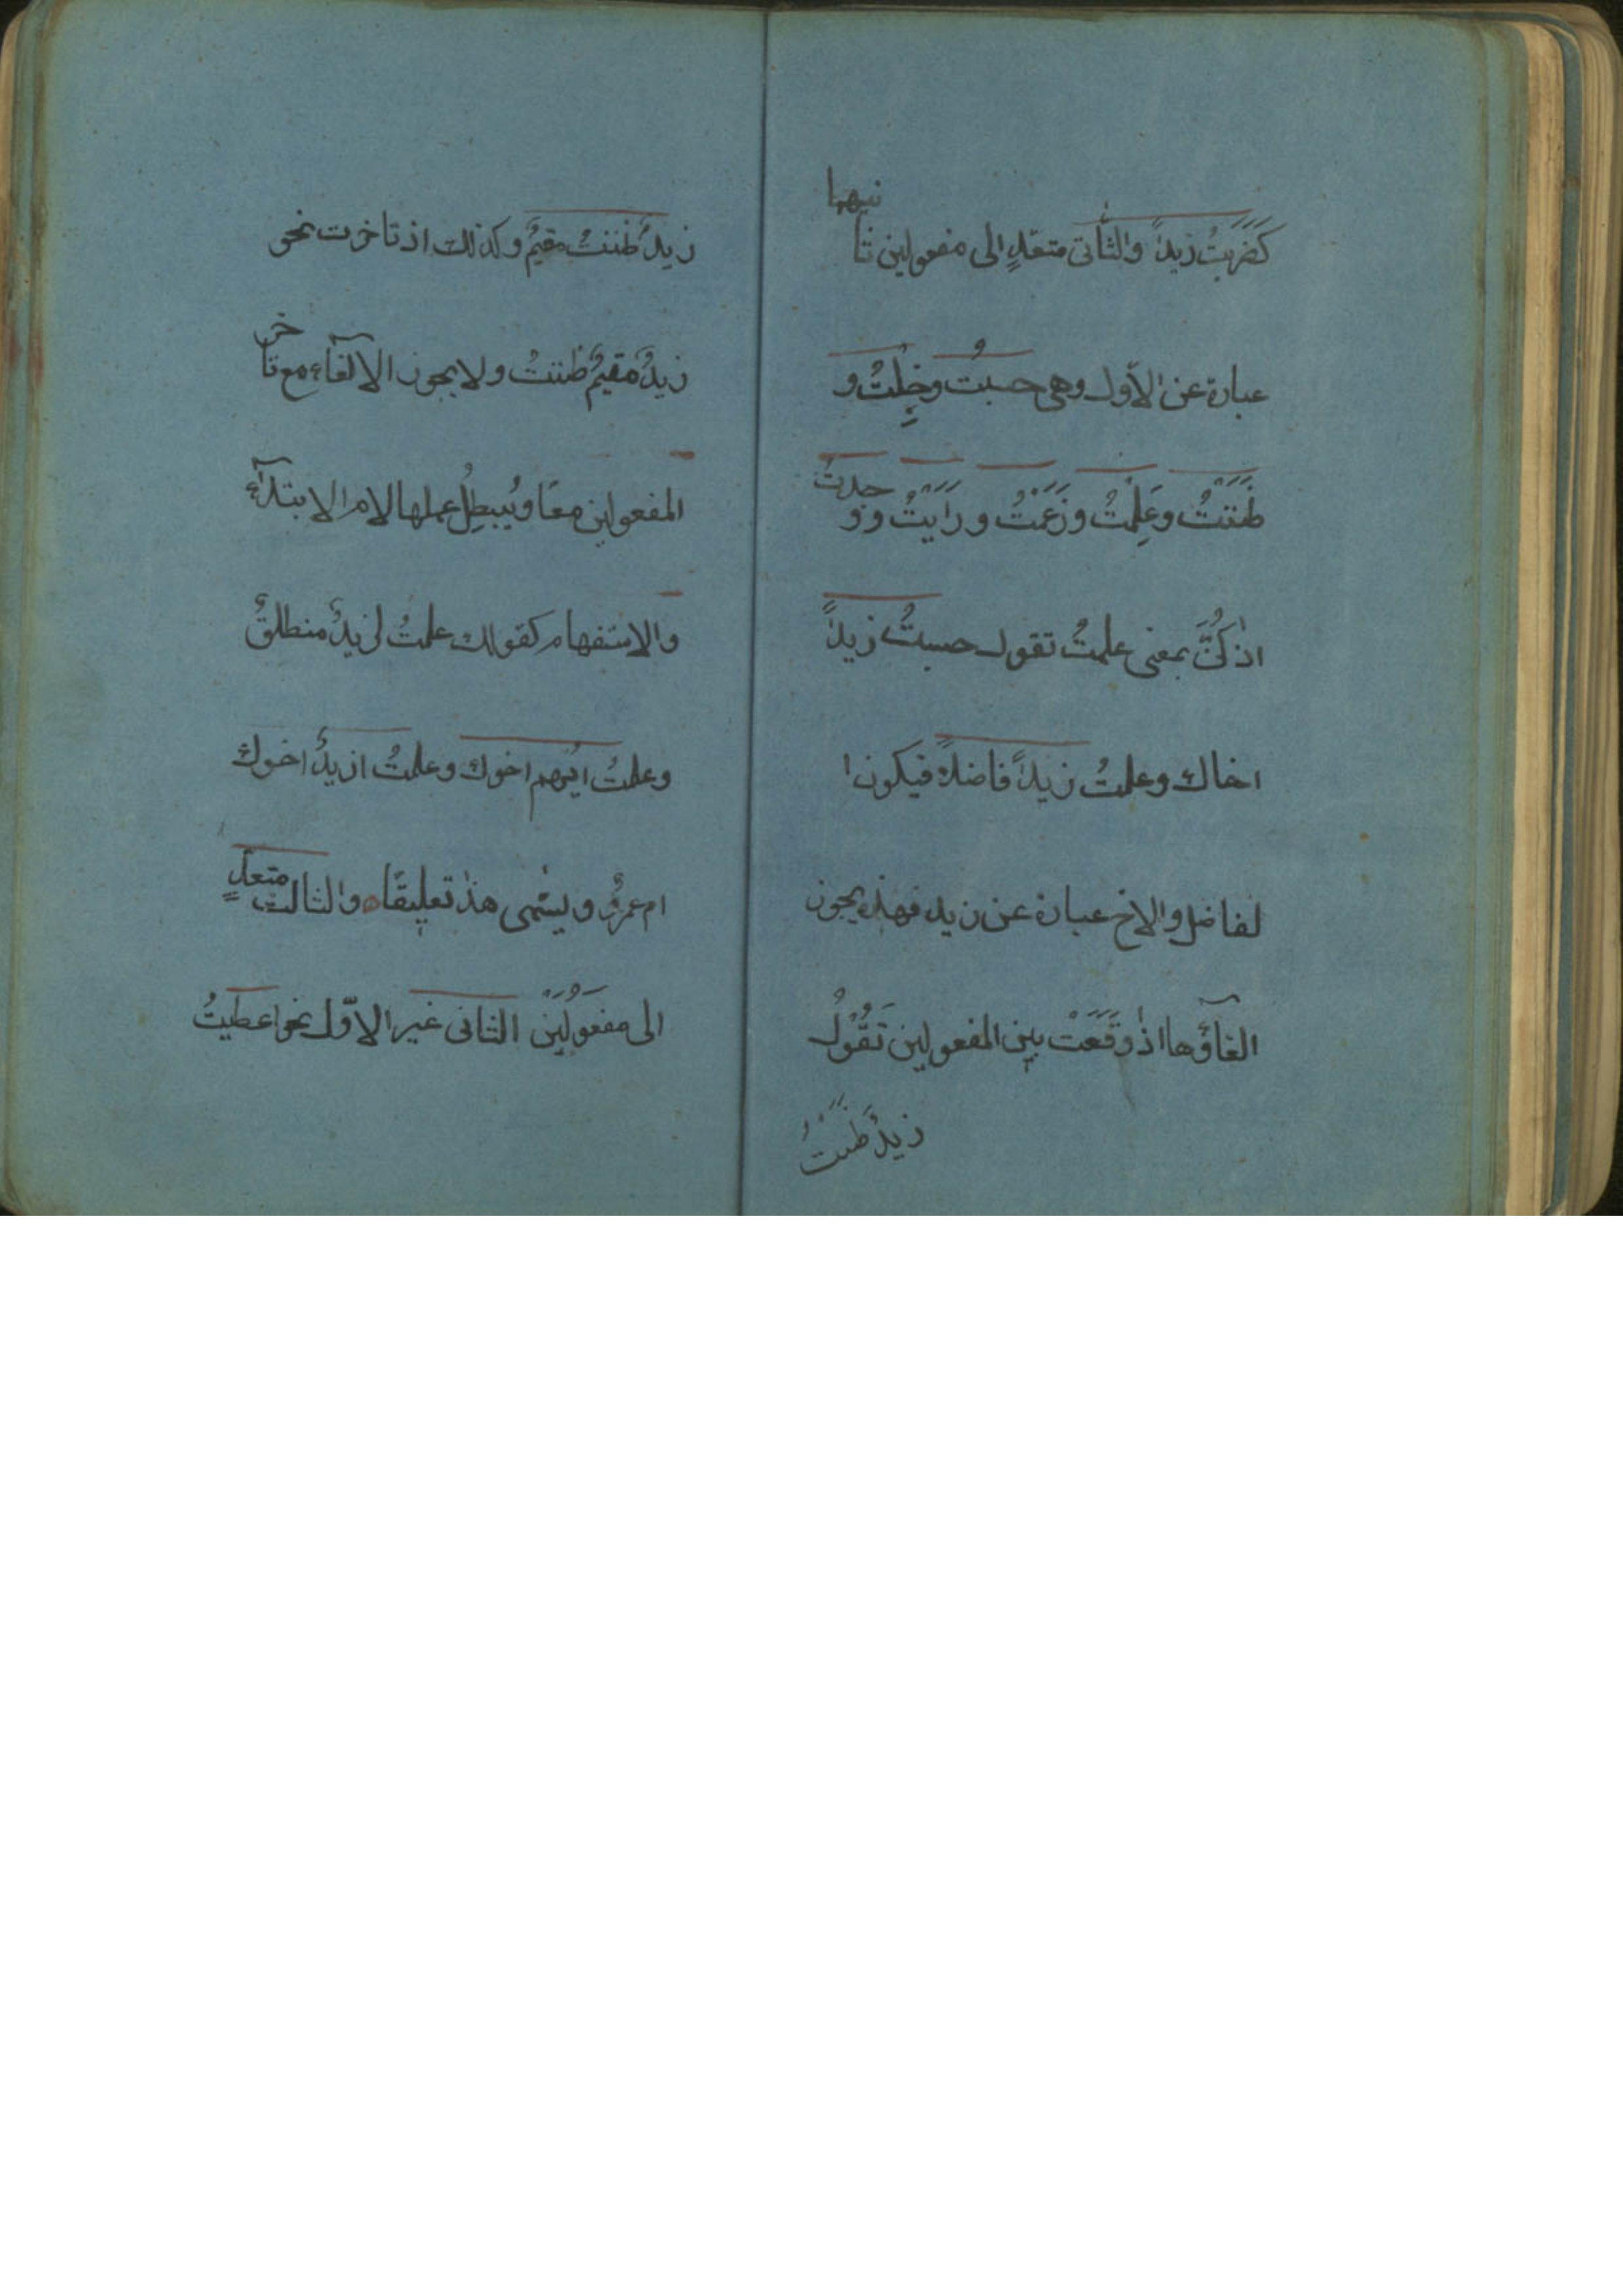 كَضَرَبتُ زيداً والثاّنى متعّدٍ الى مفعولين ثا
نيهما
عبارة عن الاّول وهى حسبتُ وخِلْتُ و
ظَنَنْتُ وعَلِمْتُ وزَعَمْتُ ورَاَيْتُ و و
جدتُ
اذ كُنَّ بمعنى علمتُ تقول حسبتُ زيداً
اخاك وعلمتُ زيداً فاضلاً فيكون ا
لفاضل والاخ عبارة عن زيد فهذه يجوز
الغآؤها اذ وَقَعَتْ بين المفعولين تَقُوْلُ
زيدٌ ظَنَنْتُ
زيدٌ ظننتُ مقيمٌ وكذلك اذ تاخرت نحو
زيدٌ مقيمٌ ظننتُ ولا يجوز الالغآء مع تا
خر
المفعولين معًا ويُبطِلُ عملها لام الابتدآء
والاستفهام كقولك علمتُ لزيدٌ منطلقٌ
وعلمتُ ايّهم اخوك وعلمتُ ازيدٌ اخوك
ام عمرٌو ويسّمى هذا تعليقًا ه والثالث متعدٍ
الى مفعَوُلَيْن الثانى غير الاّول نحو اعطيتُ